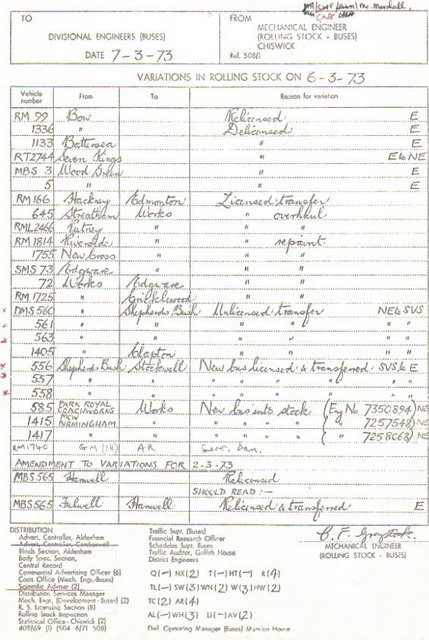 TO
DIVISIONAL ENGINEERS (BUSES)
DATE 7-3-73
FROM
MECHANICAL ENGINEER
(ROLLING STOCK - BUSES)
CHISWICK
Ref. 508/1
VARIATIONS IN ROLLING STOCK ON 6-3-73
Vehicle number From To Reason for variation
RM 99 Bow Relicensed E
1336 " Delicensed E
1133 Battersea " E
RT2744 Seven Kings " E & NE
MBS 3 Wood Green " E
5 " " E
RM 166 Hackney Edmonton Licensed transfer
645 Streatham Works " overhaul
RML 2466 Putney " " "
RM 1814 Riverside " " repaint
1755 New Cross " " "
SMS 73 Edgware " " "
72 Works Edgware " "
RM 1725 " Cricklewood " "
DMS 560 " Shepherds Bush Unlicensed transfer NE & SVS
561 " " " " "
563 " " " " "
1405 " Clapton " " "
556 Shepherds Bush Stockwell New bus licensed & transferred SVS & E
557 " " " " " " "
558 " " " " " " "
585 PARK ROYAL COACHWORKS Works New bus into stock (Eng No 7350894) NS
1415 MCW BIRMINGHAM " " " " " 7257548) NS
1417 " " " " " " 7258068) NS
RM 1740 GM AR
AMENDMENT TO VARIATIONS FOR 2-3-73
MBS 565 Hanwell Relicensed
SHOULD READ :-
MBS 565 Fulwell Hanwell Relicensed & transferred E
DISTRIBUTION
Advert. Controller, Aldenham
Advert. Controller, Camberwell
Blinds Section, Aldenham
Body Spec. Section,
Central Record
Commercial Advertising Officer (6)
Costs Office (Mech. Engr.-Buses)
Scientific Adviser (2)
Distribution Services Manager
Mech. Engr. (Development - Buses) (2)
R. S. Licensing Section (8)
Rolling Stock Inspection
Statistical Office - Chiswick (2)
408/69 (1) (504 6/71 508)
Traffic Supt. (Buses)
Financial Research Officer
Schedules Supt. Buses
Traffic Auditor, Griffith House
District Engineers
Q(-) NX(2) T(-) HT(-) R(4)
TL(-) SW(3) WN(2) W(3) HW(2)
TC(2) AR(4)
AL(-) WH(3) U(-) AV(2)
Divl. Operating Manager (Buses) Mansion House
MECHANICAL ENGINEER
(ROLLING STOCK - BUSES)